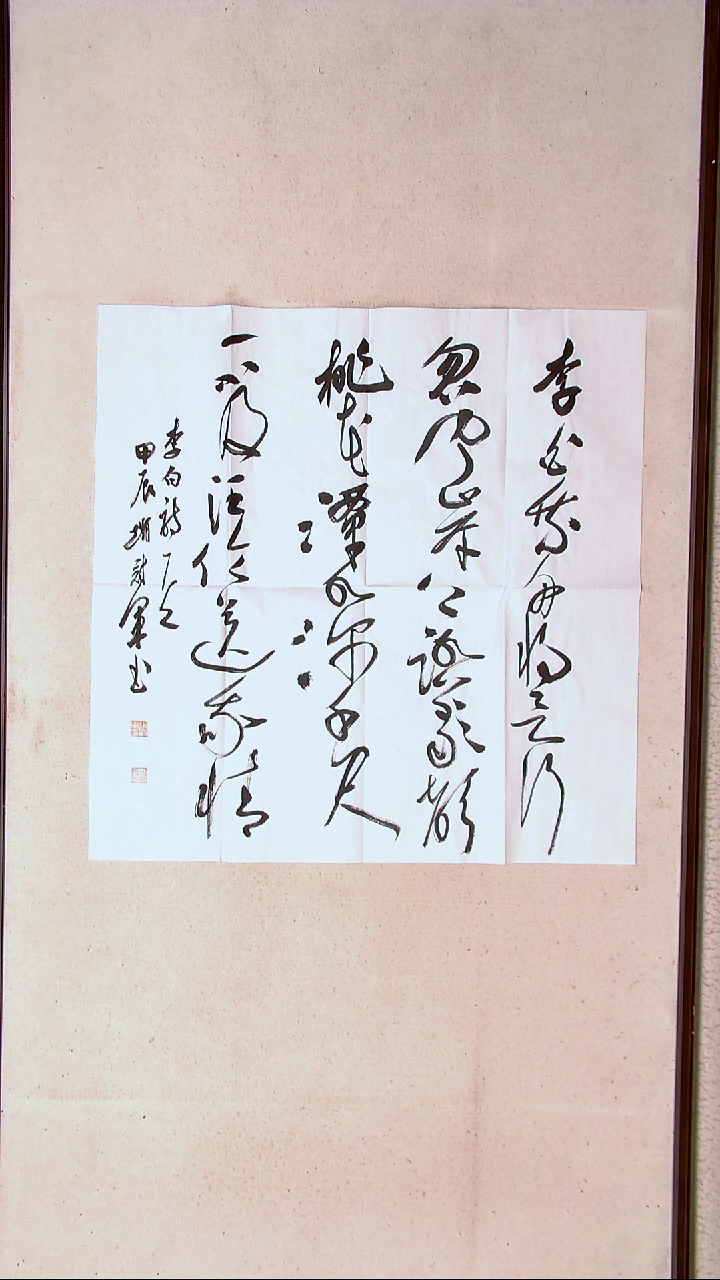 李白乘舟将欲行
忽闻岸上踏歌声
桃花潭水深千尺
不及汪伦送我情
李白诗一首
甲辰 军书